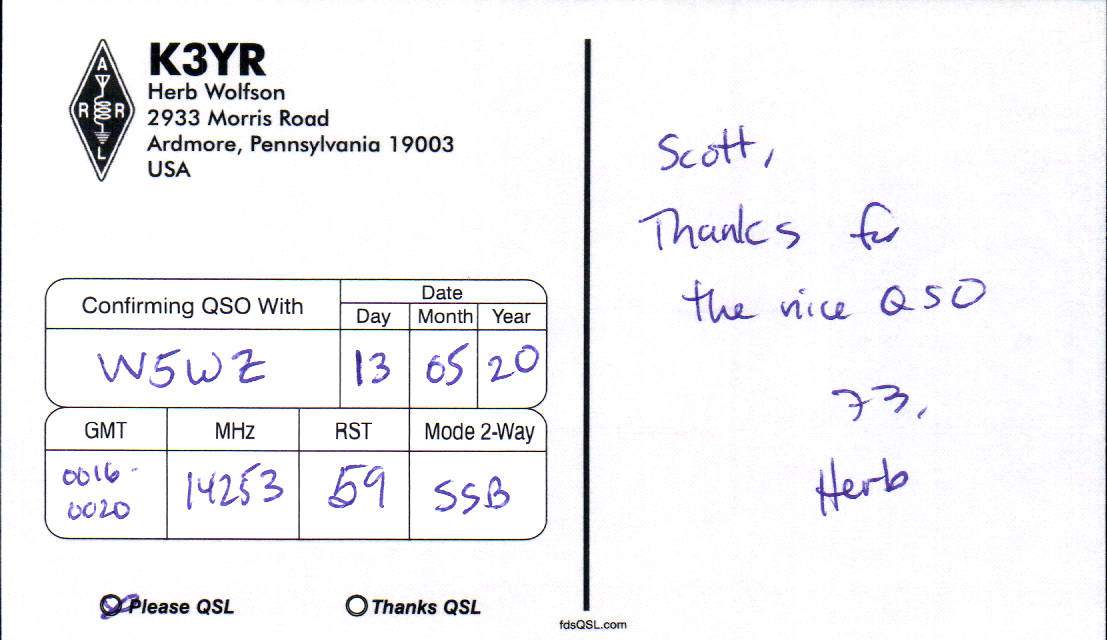 K3YR
Herb Wolfson
2933 Morris Road
Ardmore, Pennsylvania 19003
USA
A
R R
L
Confirming QSO With
Date
Day Month Year
W5WZ 13 05 20
GMT MHz RST Mode 2-Way
0016-
0020
14253 59 SSB
Please QSL Thanks QSL
Scott,
Thanks for
the nice QSO
73,
Herb
fdsQSL.com